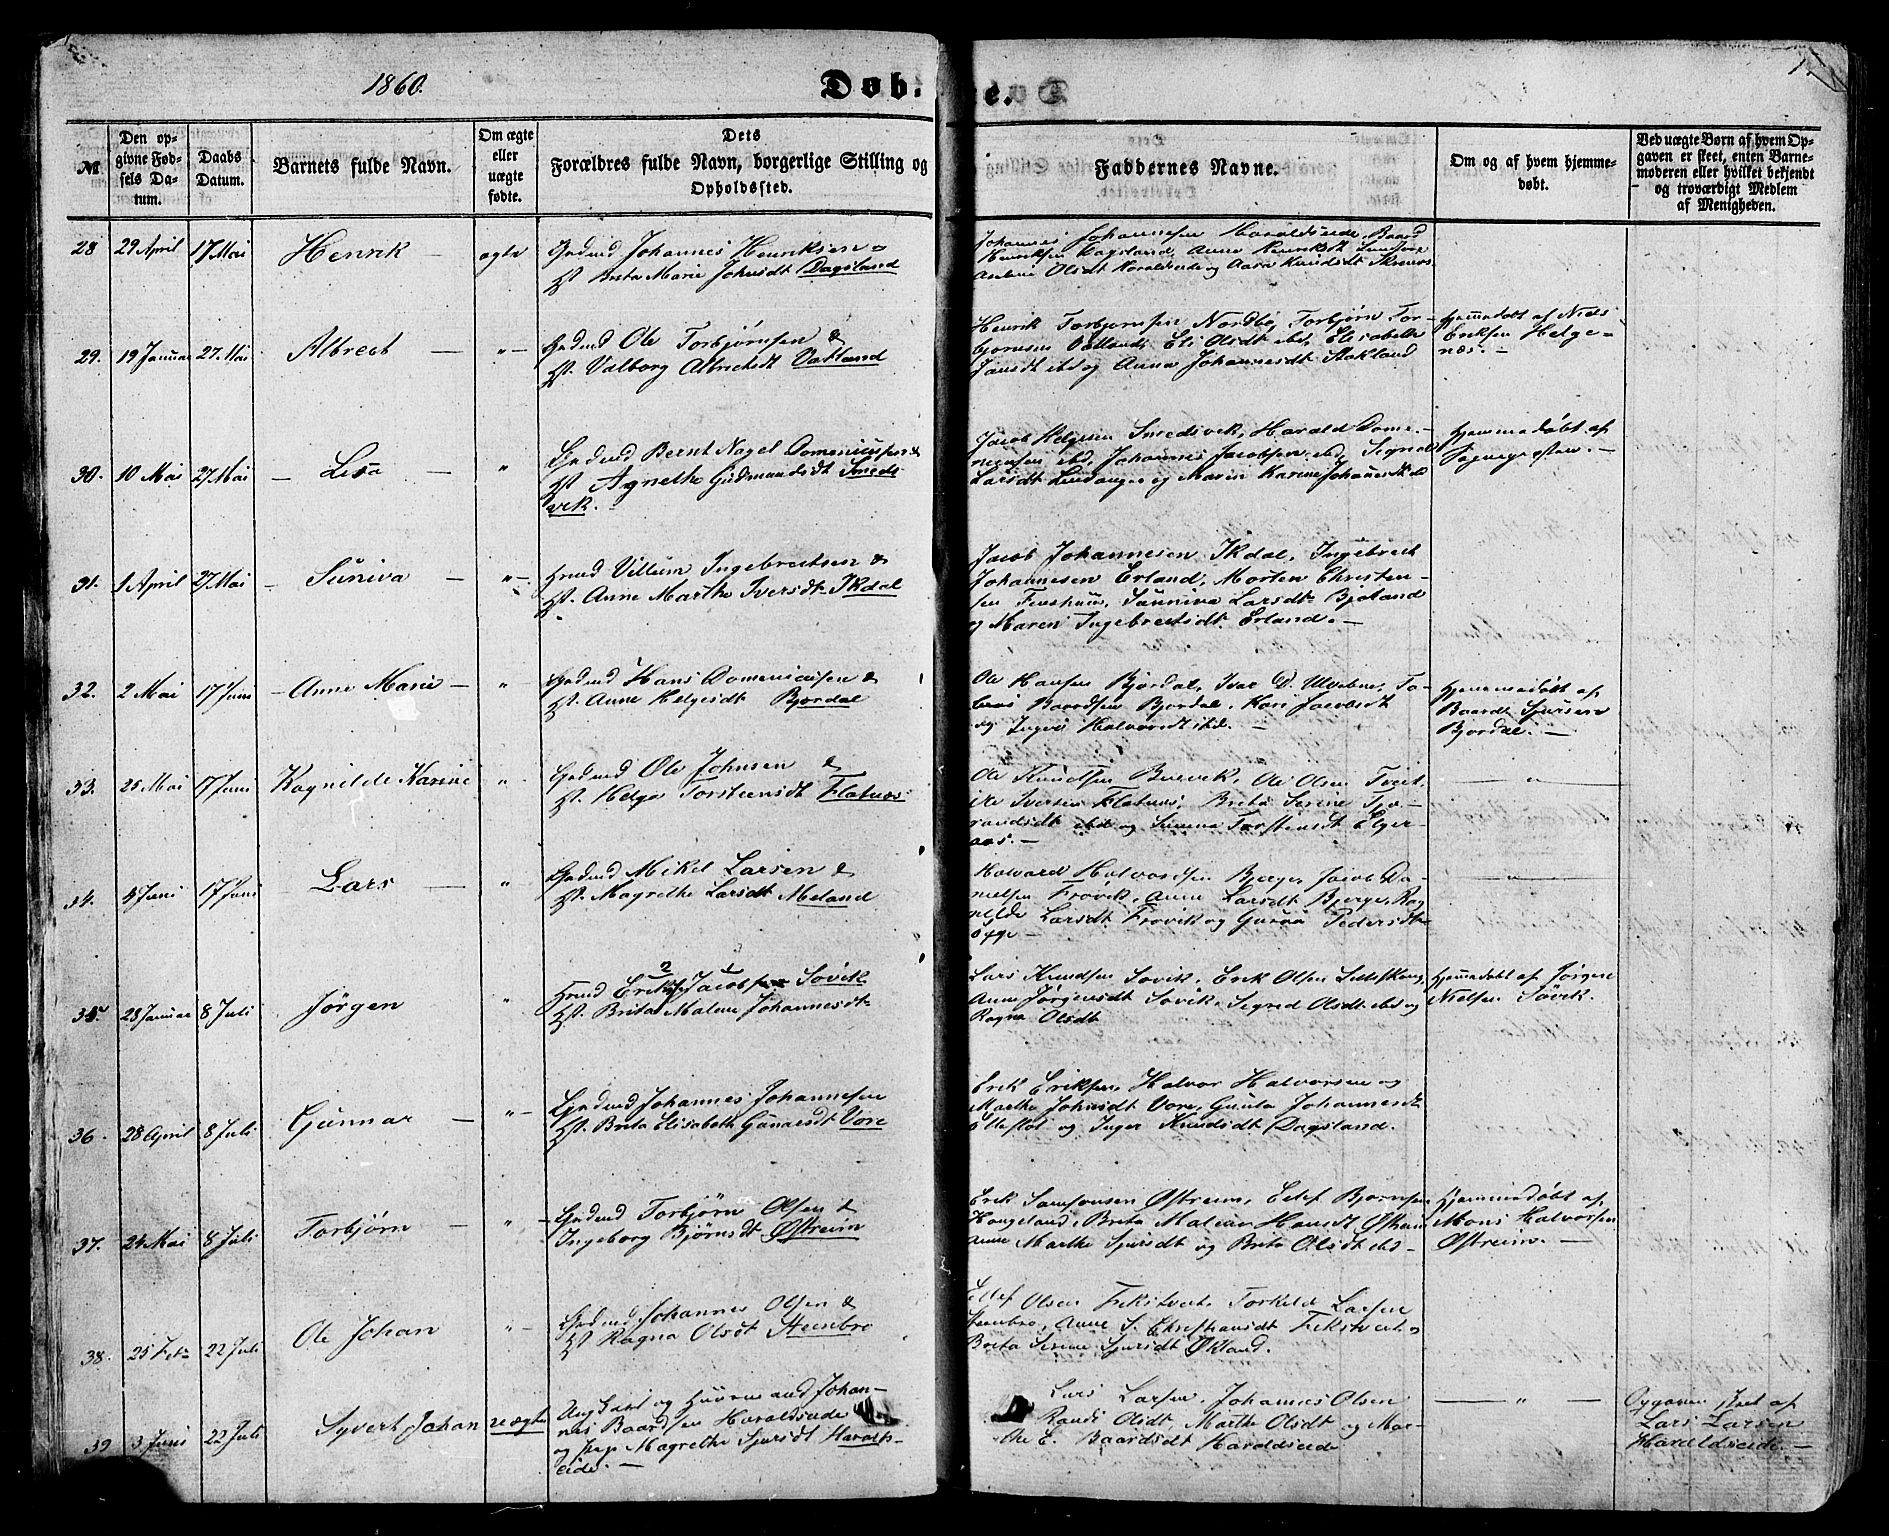 1860.
Døb-
e.
№
Den opgivne Fødsels Datum.
Daabs Datum.
Barnets fulde Navn.
Om ægte eller uægte fødte.
Dets Forældres fulde Navn, borgerlige Stilling og Opholdssted.
Faddernes Navne.
Om og af hvem hjemmedøbt.
Ved uægte Børn af hvem Opgaven er skeet, enten Barnemoderen eller hvilket bekjendt og troværdigt Medlem af Menigheden.
28 29 April 17 Mai Henrik — ægte
Gmd Johannes Henriksen &
H. Brita Marie Johnsdt Dagsland
Johannes Johannesen Haraldseide, Baard
Henriksen Dagsland, Anne Henriksdt
Olsdt Haraldseide og Aasa Knudsdt
29. 19 Januar 27. Mai Albrect — " —
Ole Torbjørnsen &
H. Valborg Albrictsdt Vatland
Henrik Torbjørnsen Nordbø, Torbjørn Tor-
bjørnsen Vatland, Eli Olsdt ibd, Elisabeth
Jansdt ibd og Anna Johannesdt Stakland
Hjemmedøbt af Niels
Eriksen Helge-
næs. —
30. 10 Mai 27 Mai — Lisa — "
Bernt Nagel Domeniussen &
H. Agnethe Gudmundsdt Smeds-
vik. —
Jacob Helgesen Smedsvik, Harald Dome-
niussen ibd, Johannes Jacobsen ibd,
Larsdt og Maren Karine Johannesdt ibd
Hjemmedøbt af
Sognepresten. —
31. 1 April 27 Mai — Suniva — " —
Villum Ingebrectsen &
H. Anne Marthe Iversdt Ikdal
Jacob Johannesen Ikdal, Ingebrect
Johannesen Erland, Morten Christen-
sen Sunniva Larsdt
og Maren Ingebrectsdt Erland. —
32. 2 Mai 17 Juni — Anne Marie — "
Hans Domeniussen &
H. Anne Helgesdt Bjordal
Ole Hansen Bjordal, Iver D. To-
bias Baardsen Bjordal, Kari Jacobsdt
og Inger Halvorsdt ibd. —
Hjemmedøbt af
Baardt Sjursen
Bjordal. —
33. 25 Mai 17 Juni Ragnilde Karine "
Ole Johnsen &
H. Helga Torstensdt Flatnes
Ole Knudsen Ole Olsen Tveit,
Ole Iversen Flatnes, Brita Serine
ibd og Torstensdt Elger-
aas. —
— " —
34. 4 Juni 17 Juni Lars — "
Mikel Larsen &
H. Magrethe Larsdt Meland
Halvard Halvardsen Bjerge, Jacob Da-
nielsen Frøvik, Anne Larsdt Bjerge, Rag-
nilde Larsdt Frøvik og Guroa Pedersdt
— " —
35 28 Januar 8 Juli Jørgen "
Erik Jacobsen Søvik
H. Brita Malene Johannesdt
Lars Knudsen Søvik, Erik Olsen
Anne Jørgensdt Søvik, Segred Olsdt ibd og
Ragna Olsdt
Hjemmedøbt af Jørgen
Nielsen Søvik. —
36. 28 April 8 Juli Gunnar — " —
Johannes Johannesen
H. Brita Elisabeth Gunarsdt Vore
Erik Eriksen, Halvor Halvorsen og
Martha Johnsdt Vore, Gunla Johannesdt
og Inger Knudsdt Dagsland.
37. 24 Mai 8 Juli Torbjørn — " —
Torbjørn Olsen &
Ingeborg Bjørnsdt Østreim
Erik Samsonsen Østreim, Edlef Bjørnsen
Haugeland, Brita Malene Hansdt
Anne Marthe Sjursdt og Brita Olsdt ibd —
Hjemmedøbt af
Mons Halvorsen
Østreim. —
38. 25 Feb 22 Juli Ole Johan " —
Johannes Olsen &
H. Ragna Olsdt Stensbro
Edlef Olsen Torkild Larsen
Stensbro, Anne S. Christiansdt
Brita Serene Sjursdt Økland.
39 3 Juni 22 Juli Syvert Johan uægte
Ungkarl og Johan-
nes Baardsen Haraldseide
og Pige Magrethe Sjursdt Haralds-
eide. —
Lars Larsen, Johannes Olsen
Randi Olsdt, Marthe Olsdt og Mar-
the E. Baardsdt Haraldseide
— " —
Opgaven skeet af
Lars Larsen
Haraldseide. —